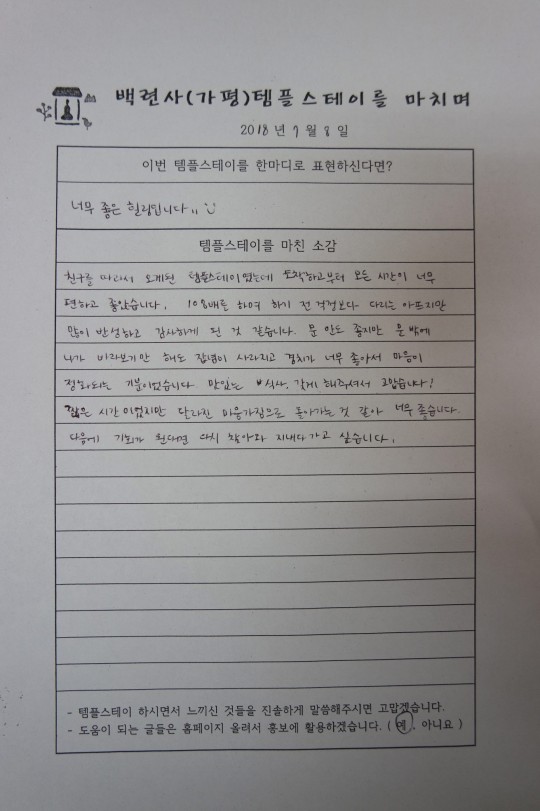 백련사(가평)템플스테이를 마치며
2018년 7월 8일
이번 템플스테이를 한마디로 표현하신다면?
너무 좋은 힐링입니다
템플스테이를 마친 소감
친구를 따라서 오게된 템플스테이였는데 도착하고부터 모든 시간이 너무
편하고 좋았습니다. 108배를 하며 하기 전 걱정보다 다리는 아프지만
많이 반성하고 감사하게 된 것 같습니다. 문 안도 좋지만 문 밖에
나가 바라보기만 해도 잡념이 사라지고 경치가 너무 좋아서 마음이
정화되는 기분이었습니다. 맛있는 식사, 갖게 해주셔서 고맙습니다!
짧은 시간이었지만 달라진 마음가짐으로 돌아가는 것 같아 너무 좋습니다.
다음에 기회가 된다면 다시 찾아와 지내다 가고 싶습니다.
- 템플스테이 하시면서 느끼신 것들을 진솔하게 말씀해주시면 고맙겠습니다.
- 도움이 되는 글들은 홈페이지 올려서 홍보에 활용하겠습니다. ( 예, 아니요 )